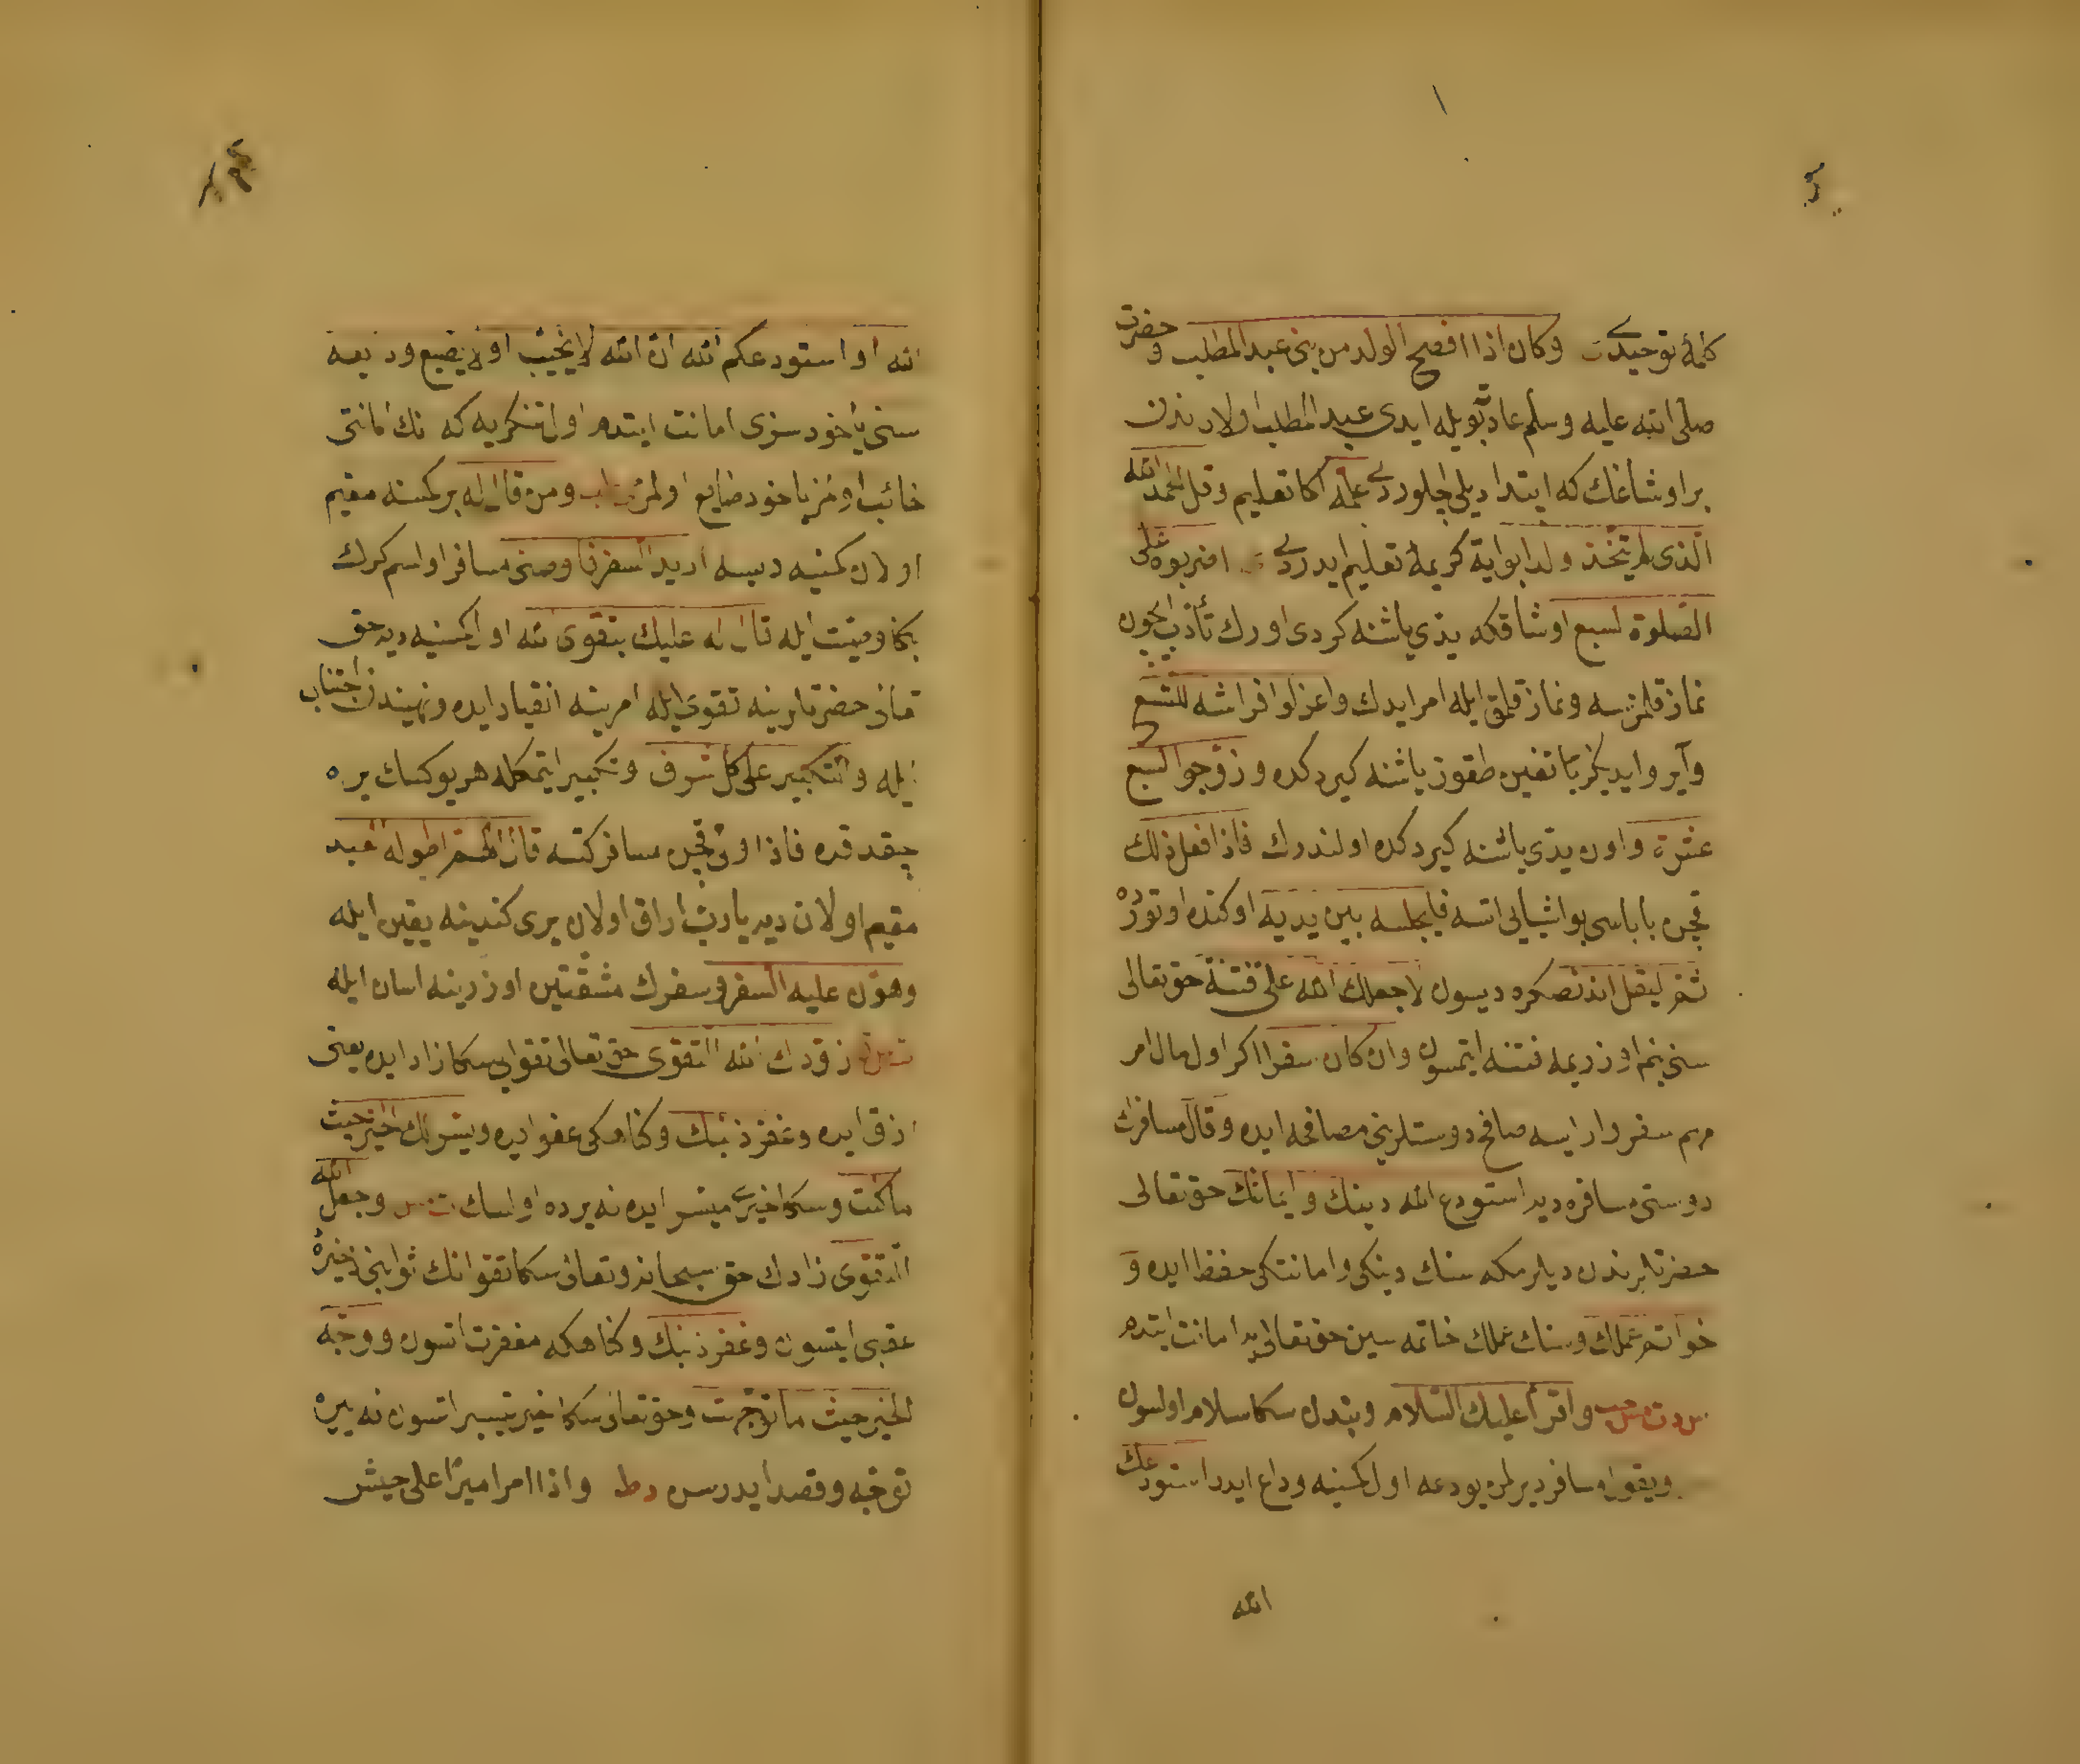 كلمۀ توحيدى وكان اذا افصح الولد من بنى عبد المطلب و حضرت
صلى الله عليه وسلم عادتى بويله ايدى عبد المطلب اولادندن
بر اوشاغك كه ابتدا ديلى اچلوردى علمه اكا تعليم وقل الحمد لله
الذى لم يتخذ ولدا بو آية كريمۀ تعليم ايدردى اضربوه على
الصلوة لسبع اوشاقكه يدى ياشنه كردى اورك تأديب ايچون
نماز قلمزسه ونماز قلمق ايله امر ايدك واعزلوا فراشه لتسع
وآير و ايدیكز ياتاغين طقوز ياشنه كيردكده وزوجوا لسبع
عشرة واون يدى ياشنه كيردكده اولندرك فاذا فعل ذلك
قچن باباسى بو اشيايى اتسه فليجلسه بين يديه اوكنده اوتورده
ثم ليقل اندنصكره ديسون لا جعلك الله على فتنة حق تعالى
سنى بنم اوزريمه فتنه ايتمسون وان كان سفرا اكر اول مال امر
مهم سفر وار ايسه صافح دوستلرينى مصافحه ايده وقال مسافرك
دوستى مسافره دير استودع الله دينك وايمانك حق تعالى
حضرتلرندن ديلرمكه سنك دينكى وامانتكى حفظ ايده و
خواتم عملك وسنك عملك خاتمه سين حق تعالى يه امانت ايتدم
واقرأ عليك السلام وبندن سكا سلام اولسون
ويقول مسافر دير لمن يودعه اول كمسنيه وداع ايدر استودعك
الله
الله او استودعكم الله ان الله لا يخيب او لا يضيع وديعه
سنى ياخود سزى امانت ايتدم اول تنكريه كه نك امانتى
خائب اولمز ياخود ضايع اولمز ومن قال له بر كمسنه مقيم
اولان كمسنيه ديسه اريد السفر فاوصنى مسافر اولسم كرك
بكا وصيت ايله قال له عليك بتقوى الله اول كمسنيه دير حق
تعالى حضرتلرينه تقوى ايله امرينه انقياد ايده ونهيندن اجتناب
ايله والتكبير على كل شرف وتكبير ايتمكله هر يوكسك يره
چيقدقده فاذا ولى قچن مسافر كتسه قال اللهم اطو له البعد
مقيم اولان دير يا رب اراق اولان يرى كندينه يقين ايله
وهون عليه السفر وسفرك مشقتين اوزرينه اسان ايله
زودك الله التقوى حق تعالى تقوايى سكا زاد ايده يعنى
رزق ايده وغفر ذنبك وكناهكى عفو ايده ويسر لك الخير حيث
ما كنت وسكا خيرى ميسر ايده نه يرده اولسك وجعل الله
التقوى زادك حق سبحانه وتعالى سكا تقوانك ثوابنى ذخيرۀ
عقبى ايتسون وغفر ذنبك وكناهكه مغفرت اتسون ووجه
للخير حيث ما توجهت وحق تعالى سكا خير تيسير اتسون نه يره
توجه وقصد ايدرسن دط واذا امر اميرا على جيش